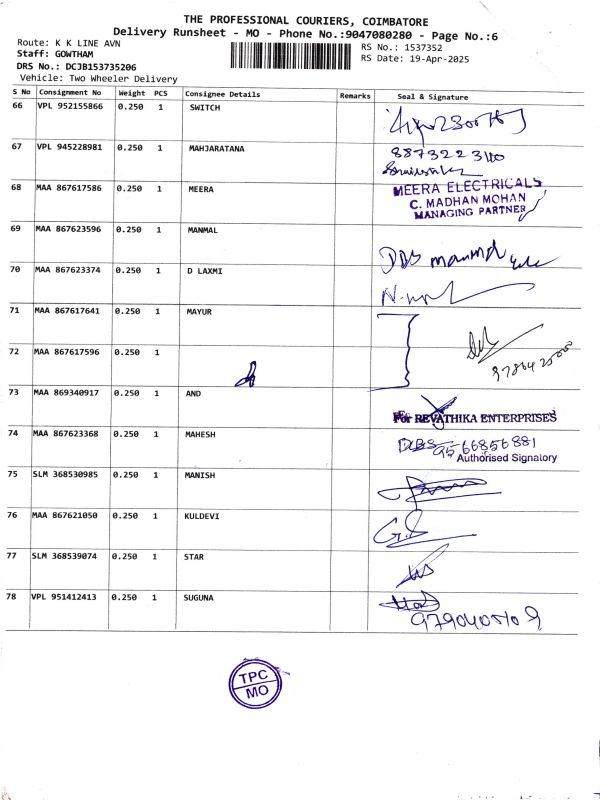 THE PROFESSIONAL COURIERS, COIMBATORE
Delivery Runsheet - MO - Phone No.:9047080280 - Page No.:6
Route: K K LINE AVN
RS No.: 1537352
Staff: GOWTHAM
RS Date: 19-Apr-2025
DRS No.: DCJB153735206
Vehicle: Two Wheeler Delivery
S No Consignment No Weight PCS Consignee Details Remarks Seal & Signature
66 VPL 952155866 0.250 1 SWITCH
67 VPL 945228981 0.250 1 MAHJARATANA
8873223110
68 MAA 867617586 0.250 1 MEERA
MEERA ELECTRICALS
C. MADHAN MOHAN
MANAGING PARTNER
69 MAA 867623596 0.250 1 MANMAL
70 MAA 867623374 0.250 1 D LAXMI
71 MAA 867617641 0.250 1 MAYUR
72 MAA 867617596 0.250 1
73 MAA 869340917 0.250 1 AND
For REVATHIKA ENTERPRISES
74 MAA 867623368 0.250 1 MAHESH
9566856881
Authorised Signatory
75 SLM 368530985 0.250 1 MANISH
76 MAA 867621050 0.250 1 KULDEVI
77 SLM 368539074 0.250 1 STAR
78 VPL 951412413 0.250 1 SUGUNA
TPC
MO